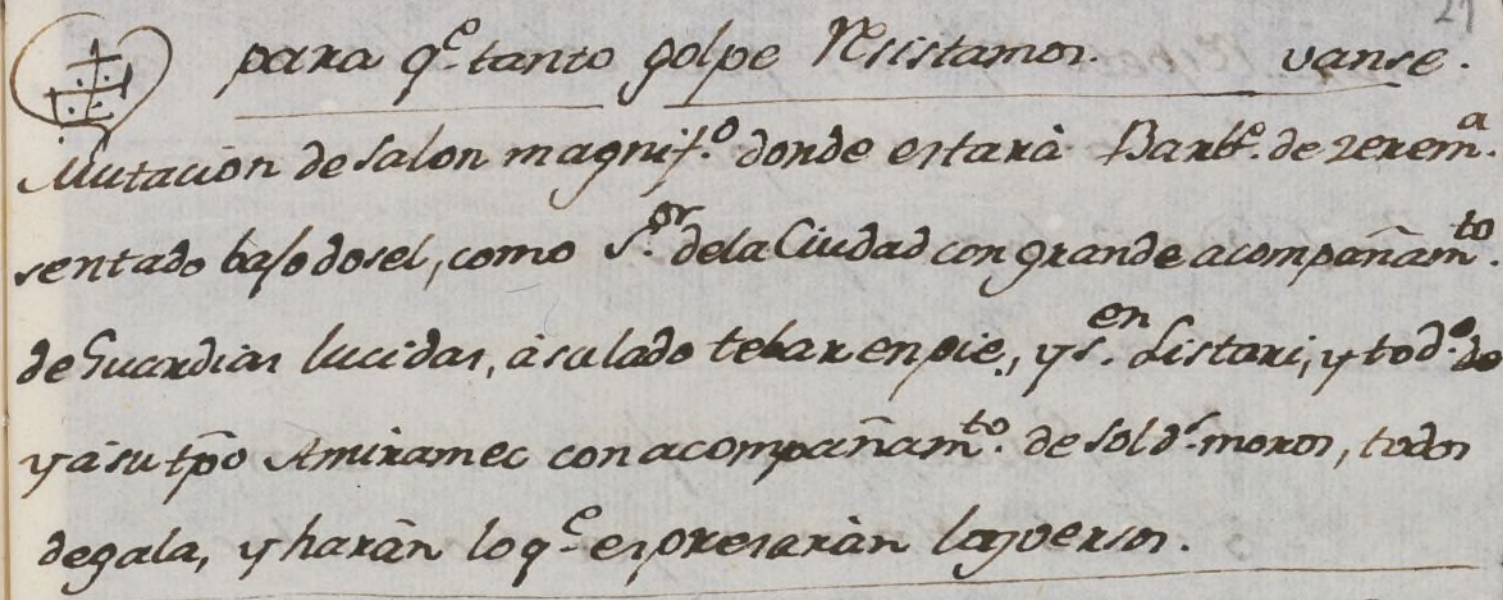 21
para q.e tanto golpe Resistamos. vanse.
Mutacion de salon magnif.o donde estarà Barb.e de zerem.a
sentado bajo dosel, como S.or dela Ciudad con grande acompañam.to
de Guardias lucidas, à su lado tebar en pie, y s.en Listari, y tod.o de
y à su tp̃o Amiramec con acompañam.to de sold.s moros, todos
de gala, y haràn lo q.e espresaràn los versos.